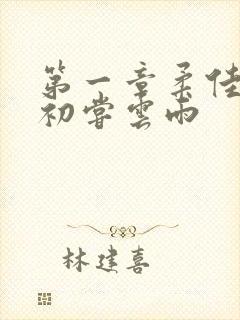 第一章柔佳
初嘗雲雨
林建喜